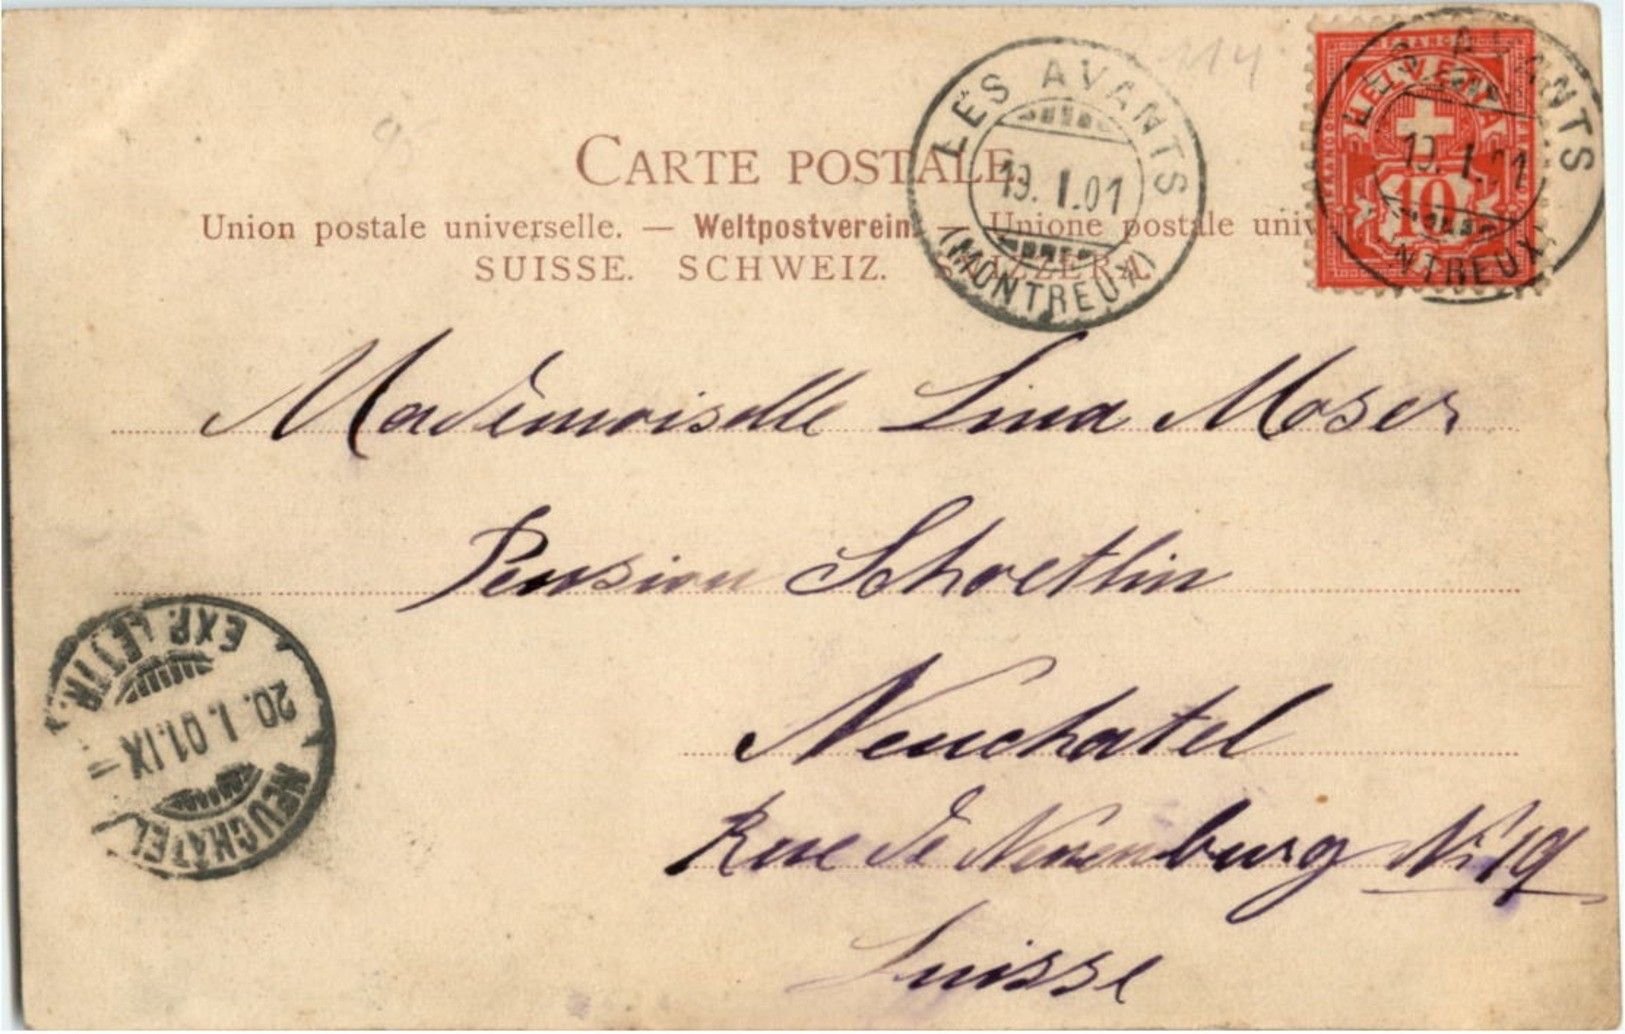 114
95
CARTE POSTALE
Union postale universelle. — Weltpostverein. — Unione postale univ
SUISSE. SCHWEIZ. SVIZZERA
LES AVANTS
19. I. 01
(MONTREUX)
FRANCO
HELVETIA
10
LES AVANTS
19. I. 01
NTREUX)
Mademoiselle Lina Moser
Pension Schoetlin
Neuchatel
Rue de Neuenburg No 19
Suisse
NEUCHATEL
20. I. 01. IX
EXP. LETTR.